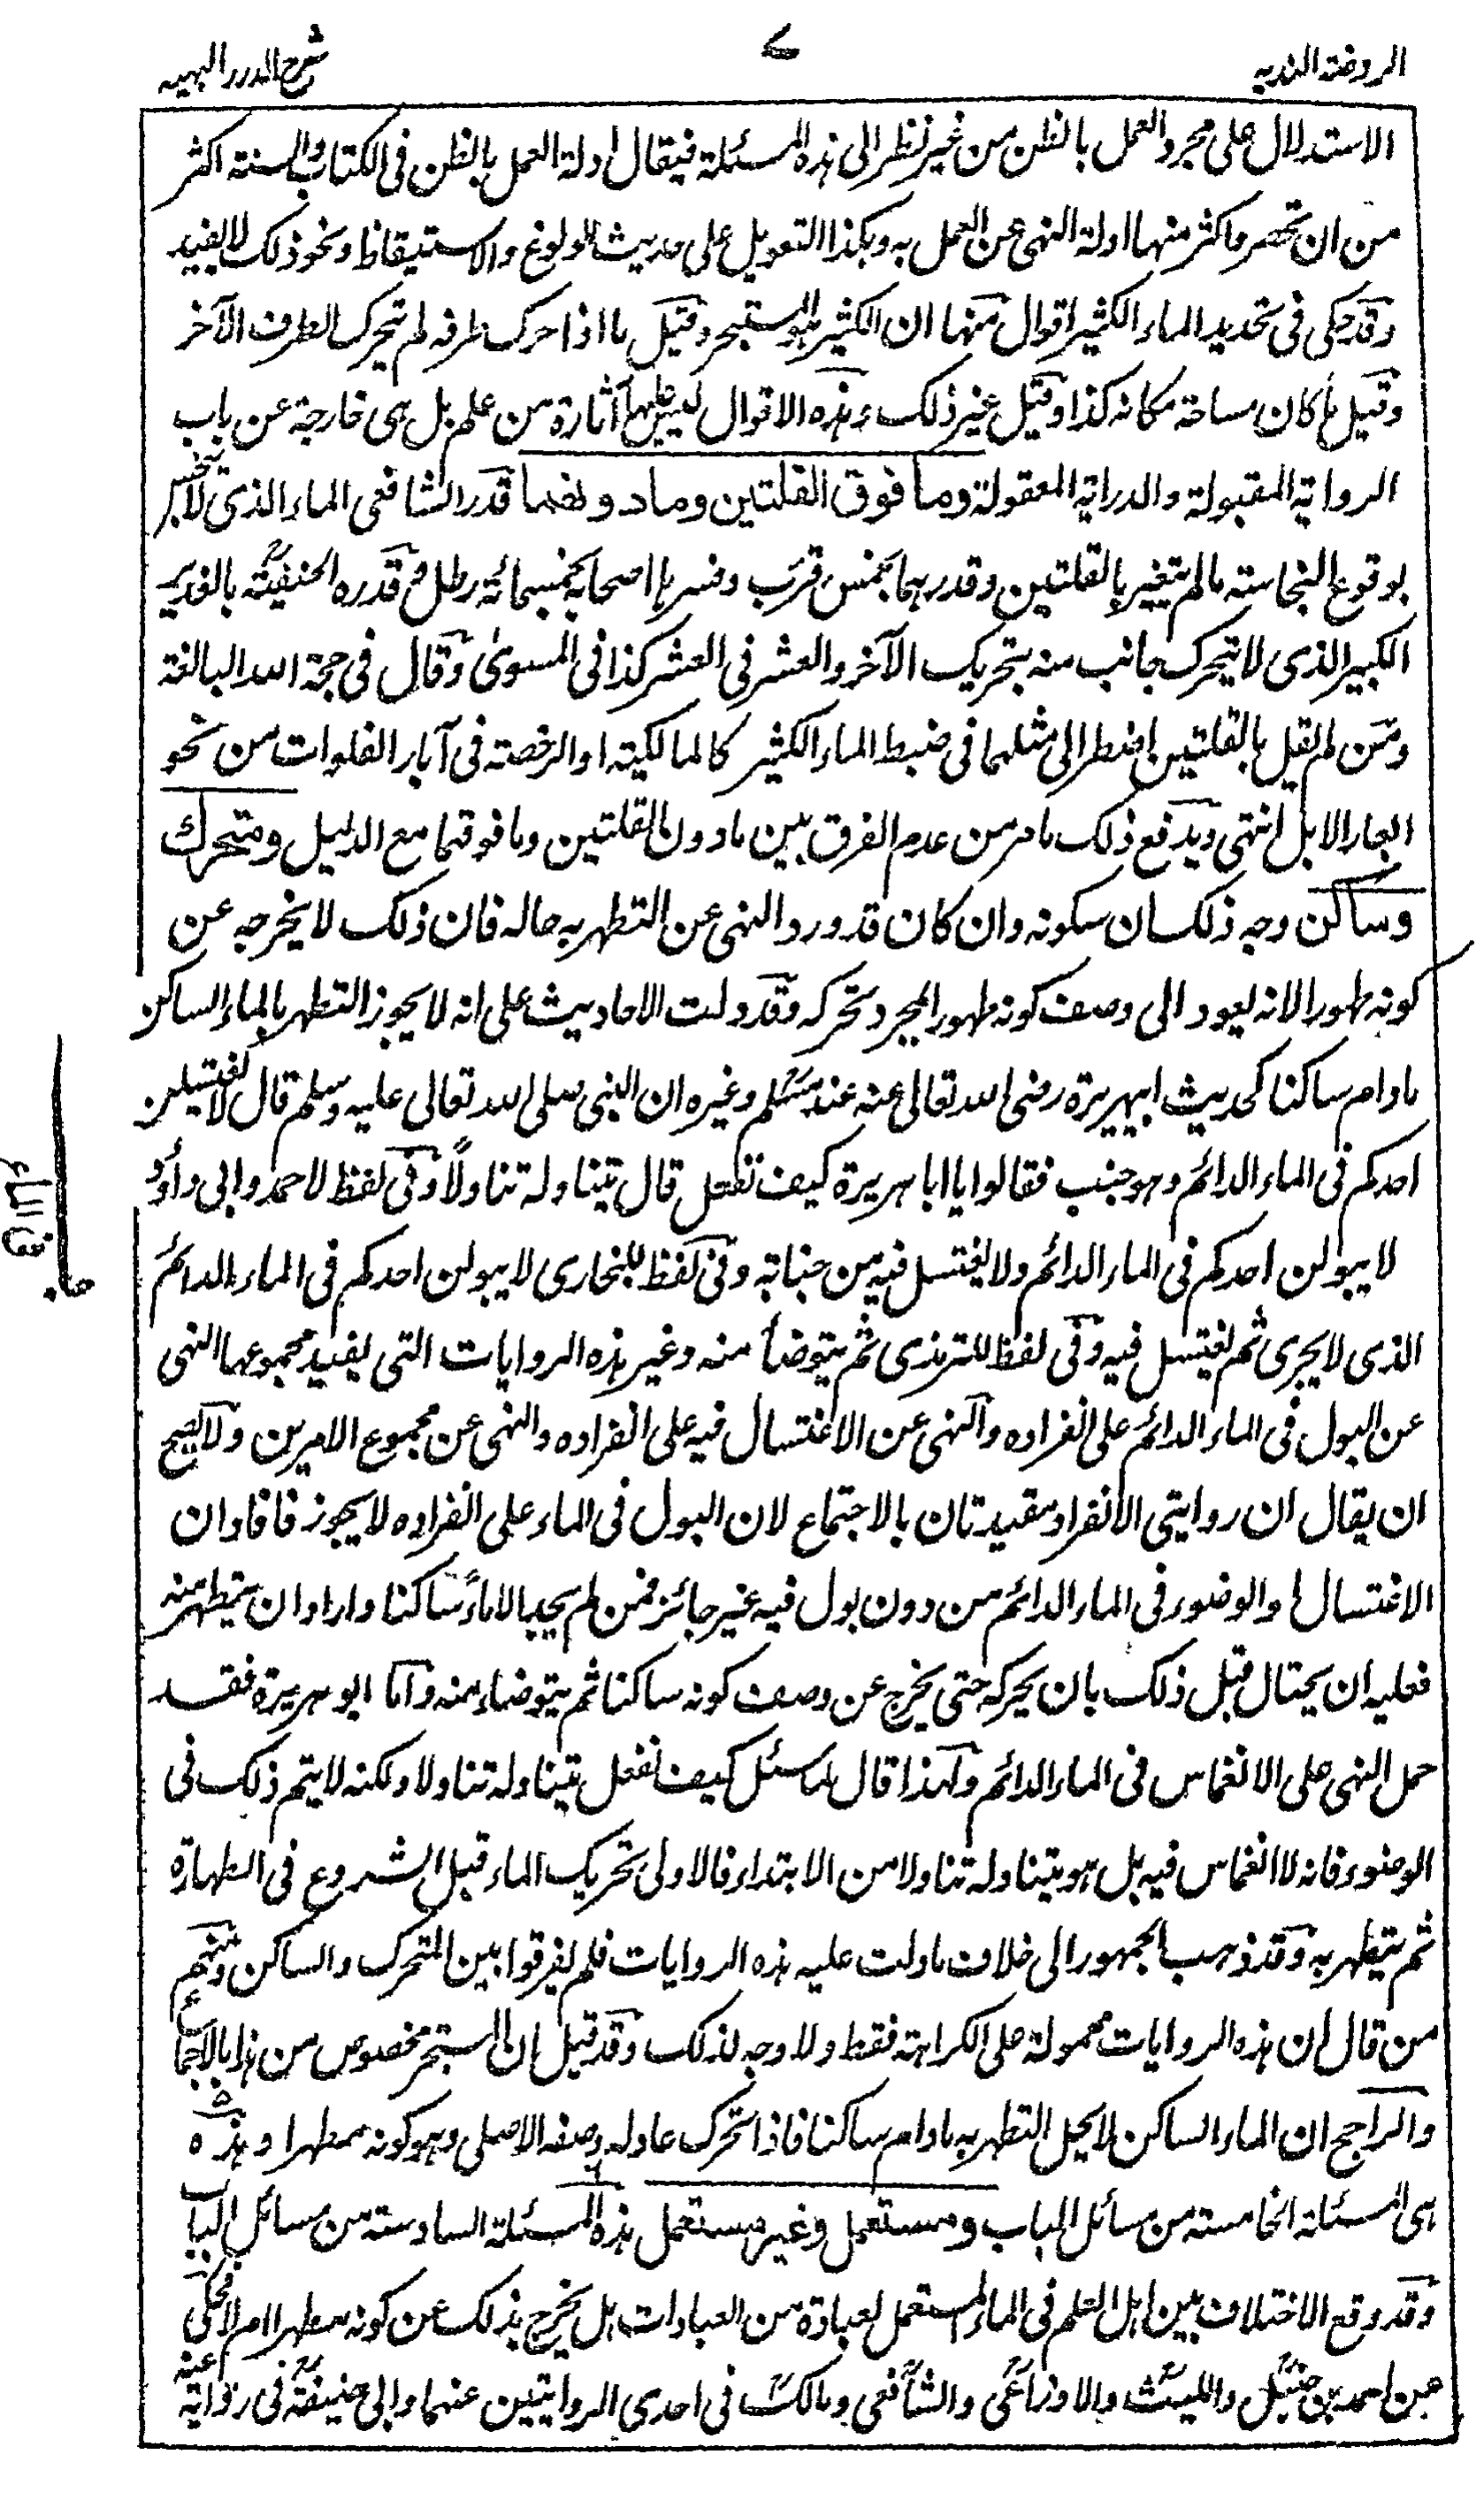 الروضة الندية
٧
شرح الدرر البهية
الاستدلال على مجرد العمل بالظن من غير نظر الى هذه المسئلة فيقال ادلة العمل بالظن فى الكتاب والسنة اكثر
من ان تحصر واكثر منها ادلة النهى عن العمل به وهكذا التعويل على حديث الولوغ والاستيقاظ ونحو ذلك لا يفيد
وقد حكى فى تحديد الماء الكثير اقوال منها ان الكثير هو المستبحر وقيل ما اذا حرك طرفه لم يتحرك الطرف الآخر
وقيل ما كان مساحة مكانه كذا وقيل غير ذلك وهذه الاقوال ليس عليها آثارة من علم بل هى خارجة عن باب
الرواية المقبولة والدراية المعقولة وما فوق القلتين وما دونهما قدر الشافعى الماء الذى لا
بوقوع النجاسة ما لم يتغير بالقلتين وقدرهما بخمس قرب وفسرها اصحابه بخمسمائة رطل وقدره الحنفية بالغدير
الكبير الذى لا يتحرك جانب منه بتحريك الآخر والعشر فى العشر كذا فى المسوى وقال فى حجة الله البالغة
ومن لم يقل بالقلتين اضطر الى مثلهما فى ضبط الماء الكثير كالمالكية او الرخصة فى آبار الفلوات من نحو
ابعار الابل انتهى ويدفع ذلك ما مر من عدم الفرق بين ما دون القلتين وما فوقهما مع الدليل ومتحرك
وساكن وجه ذلك ان سكونه وان كان قد ورد النهى عن التطهر به حاله فان ذلك لا يخرجه عن
كونه طهورا لانه يعود الى وصف كونه طهورا بمجرد تحركه وقد دلت الاحاديث على انه لا يجوز التطهر بالماء الساكن
ما دام ساكنا كحديث ابيهريرة رضى الله تعالى عنه عند مسلم وغيره ان النبى صلى الله تعالى عليه وسلم قال لا يغتسلن
احدكم فى الماء الدائم وهو جنب فقالوا يا ابا هريرة كيف تفعل قال يتناوله تناولاً وفى لفظ لاحمد وابى داؤد
لا يبولن احدكم فى الماء الدائم ولا يغتسل فيه من جنابة وفى لفظ للبخارى لا يبولن احدكم فى الماء الدائم
الذى لا يجرى ثم يغتسل فيه وفى لفظ للترمذى ثم يتوضأ منه وغير هذه الروايات التى يفيد مجموعها النهى
عن البول فى الماء الدائم على انفراده والنهى عن الاغتسال فيه على انفراده والنهى عن مجموع الامرين ولا يصح
ان يقال ان روايتى الانفراد مقيدتان بالاجتماع لان البول فى الماء على انفراده لا يجوز فافاد ان
الاغتسال والوضوء فى الماء الدائم من دون بول فيه غير جائز فمن لم يجد الا ماءً ساكنا واراد ان يتطهر منه
فعليه ان يحتال قبل ذلك بان يحركه حتى يخرج عن وصف كونه ساكنا ثم يتوضاء منه واما ابو هريرة فقد
حمل النهى على الانغماس فى الماء الدائم ولهذا قال لما سئل كيف نفعل يتناوله تناولا ولكنه لا يتم ذلك فى
الوضوء فانه لا انغماس فيه بل هو يتناوله تناولا من الابتداء فالاولى تحريك الماء قبل الشروع فى الطهارة
ثم يتطهر به وقد ذهب الجمهور الى خلاف ما دلت عليه هذه الروايات فلم يفرقوا بين المتحرك والساكن ومنهم
من قال ان هذه الروايات محمولة على الكراهة فقط ولا وجه لذلك وقد قيل ان المستبحر مخصوص من هذا بالاجماع
والراجح ان الماء الساكن لا يحل التطهر به ما دام ساكنا فاذا تحرك عاد له وصفه الاصلى وهو كونه مطهرا وهذه
هى المسئلة الخامسة من مسائل الباب ومستعمل وغير مستعمل هذه المسئلة السادسة من مسائل الباب
وقد وقع الاختلاف بين اهل العلم فى الماء المستعمل لعبادة من العبادات هل يخرج بذلك عن كونه مطهرا ام لا فحكى
عن احمد بن حنبل والليث والاوزاعى والشافعى ومالك فى احدى الروايتين عنهما وابى حنيفة فى رواية عنه